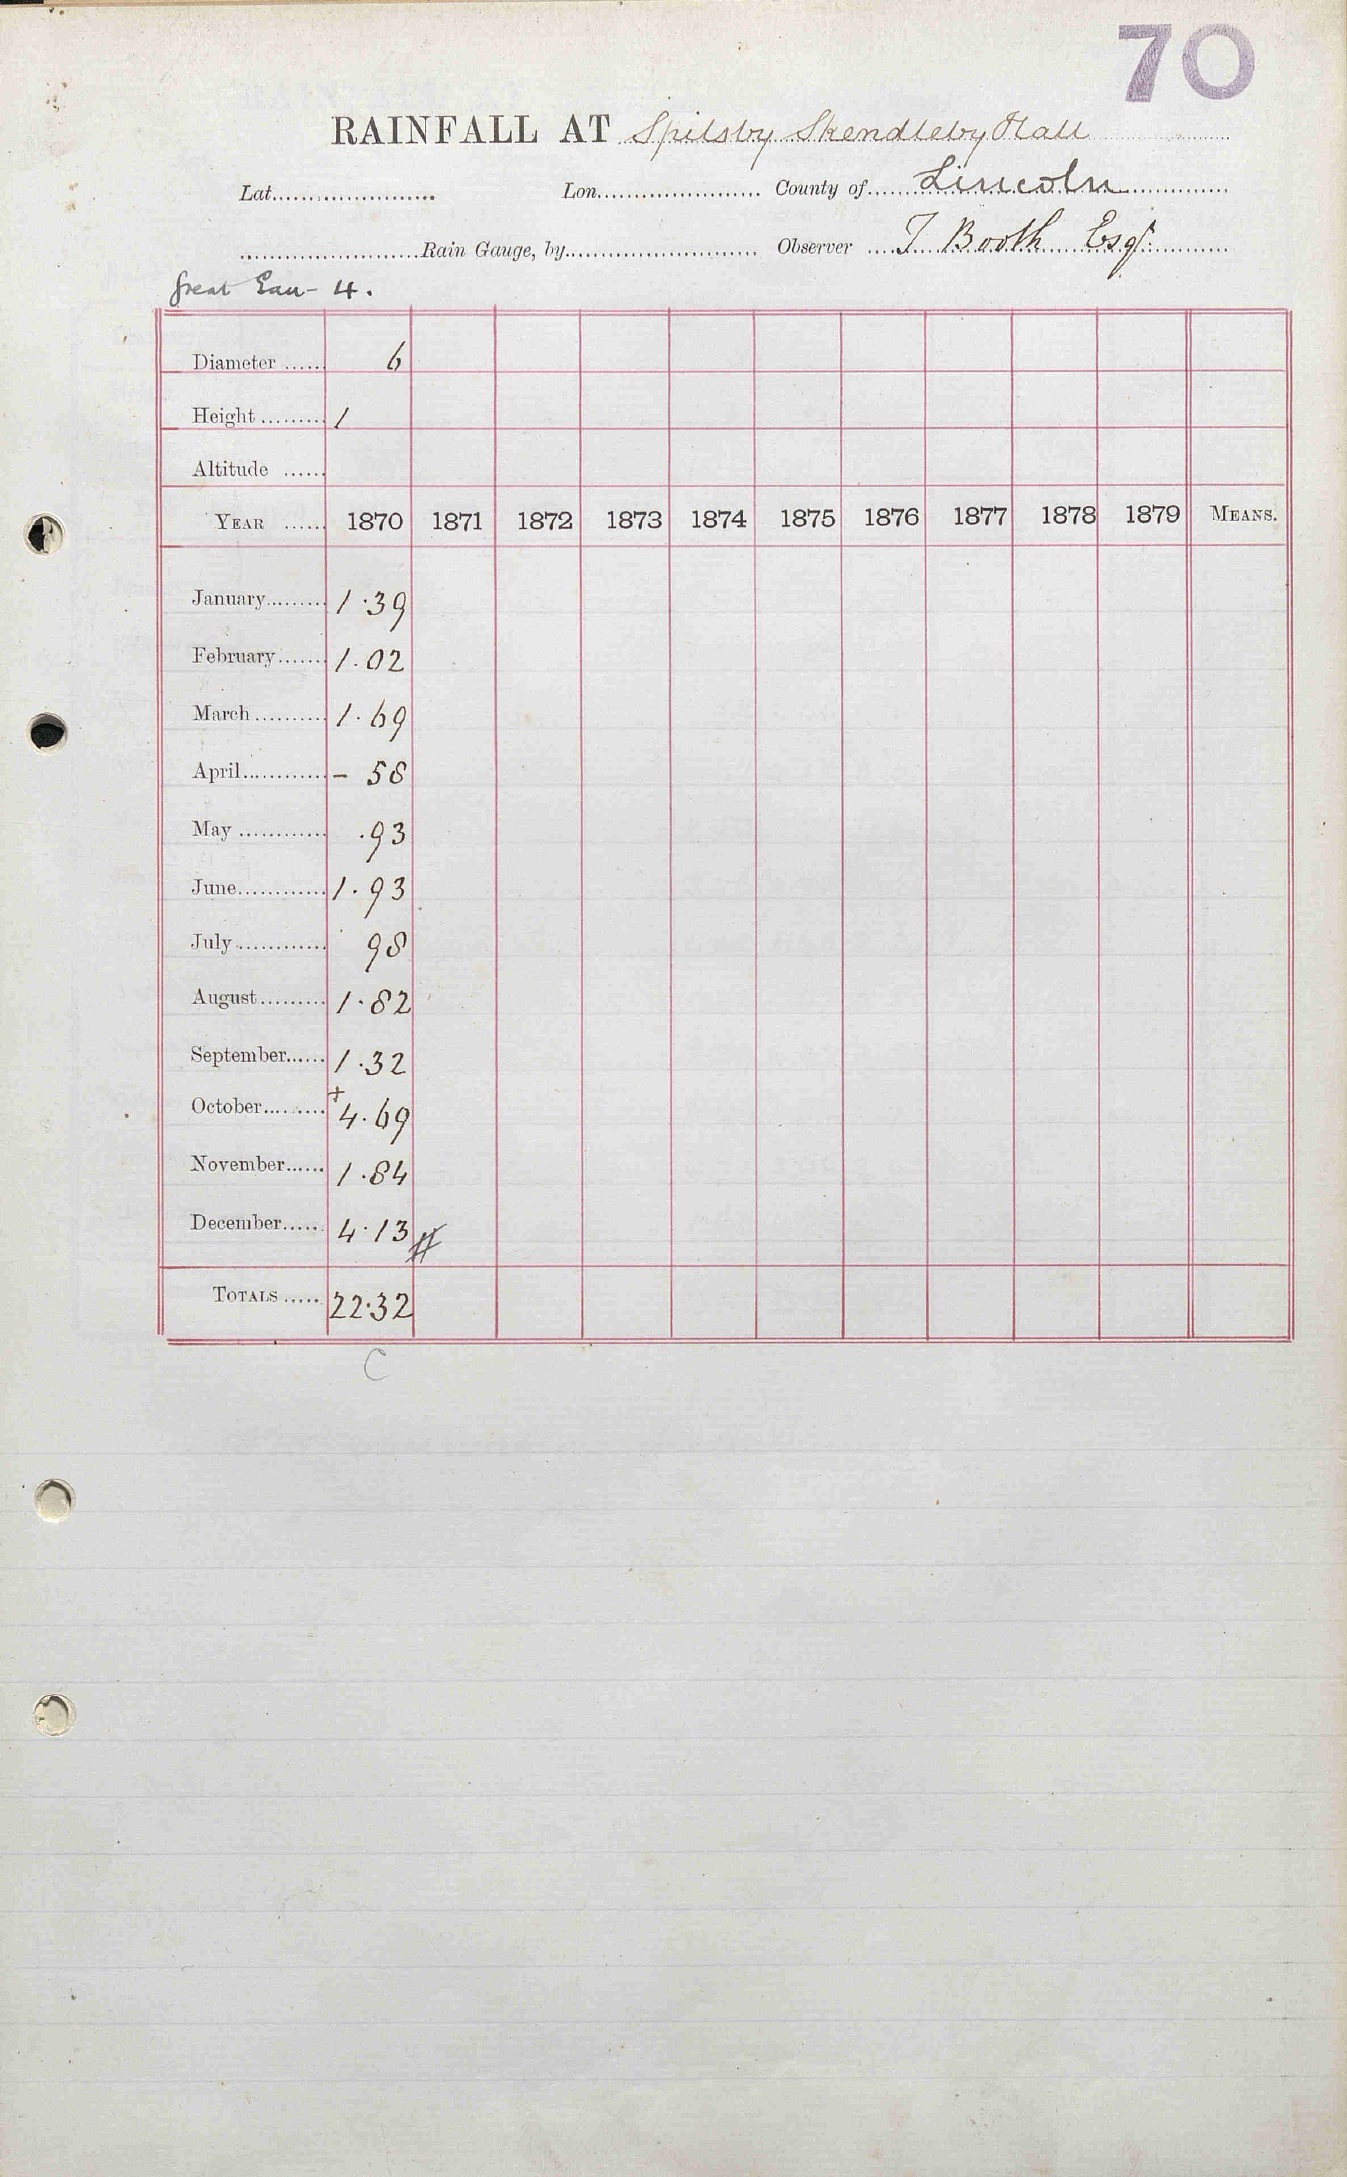 70
RAINFALL AT Spilsby Skendleby Hall
Lat. Lon. County of Lincoln
Rain Gauge, by Observer T Booth Esqr
Great Eau - 4.
Diameter 6
Height 1
Altitude
YEAR 1870 1871 1872 1873 1874 1875 1876 1877 1878 1879 MEANS.
January 1.39
February 1.02
March 1.69
April - 58
May .93
June 1.93
July 98
August 1.82
September 1.32
October +4.69
November 1.84
December 4.13 #
TOTALS 22.32
C